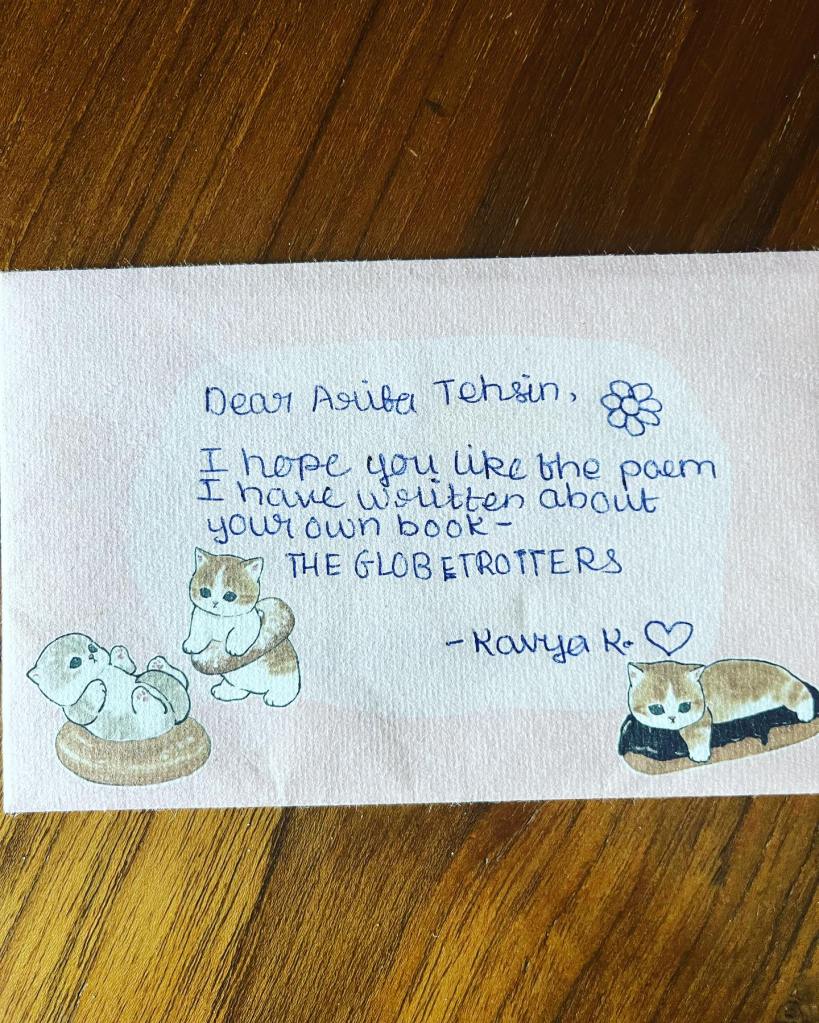 Dear Ariba Tehsin,
I hope you like the poem
I have written about
your own book-
THE GLOBETROTTERS
- Kavya K.